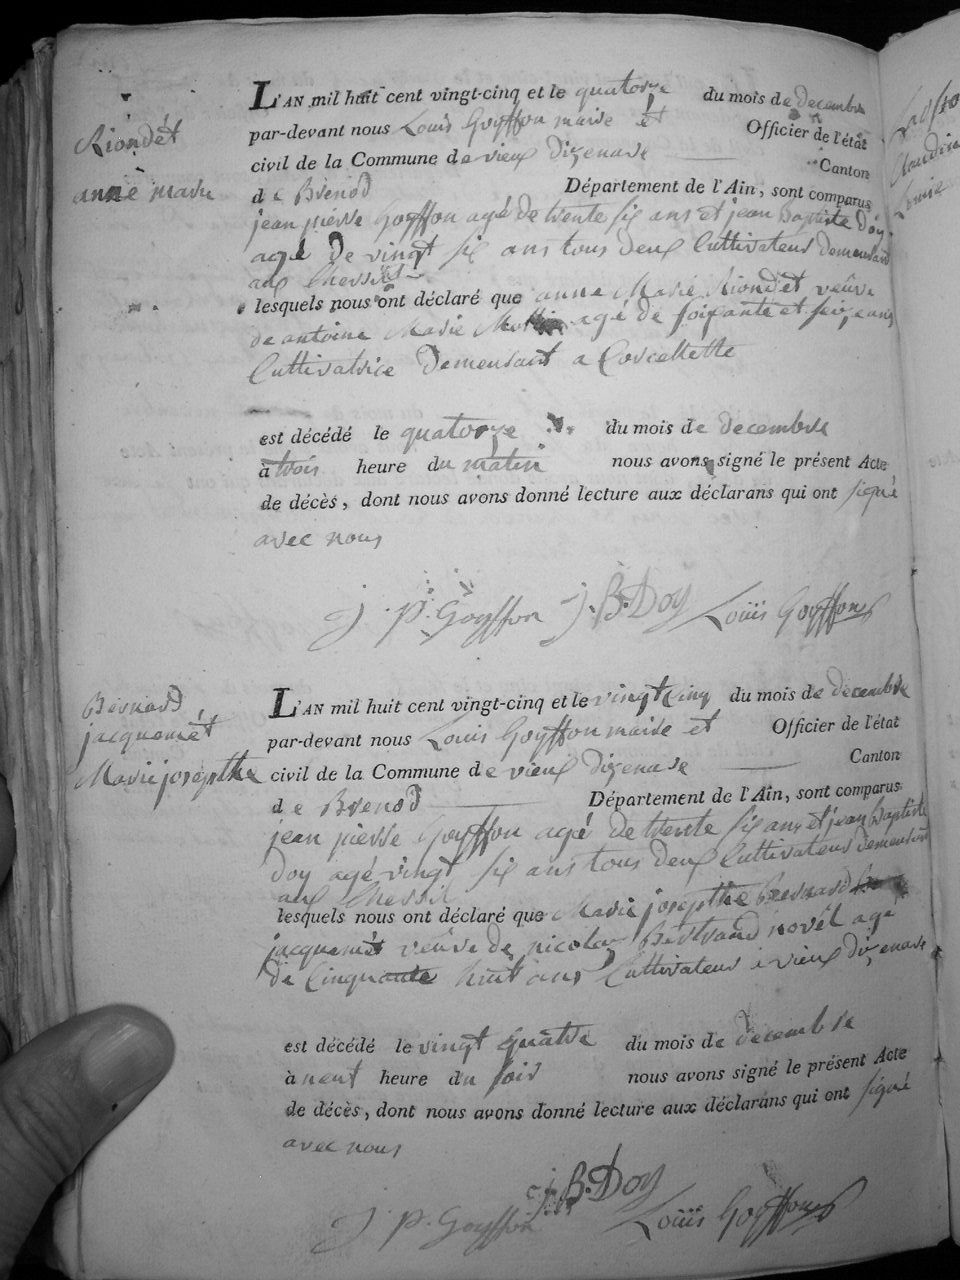 Riondet
anne marie
L'AN mil huit cent vingt-cinq et le quatorze du mois de decembre
par-devant nous Louis Goyffon maire et Officier de l'état
civil de la Commune de vieux dizenave Canton
de Brenod Département de l'Ain, sont comparus
jean pierre Goyffon agé de trente six ans et jean baptiste Doy
agé de vingt six ans tous deux Cultivateur demeurant
aux
lesquels nous ont déclaré que anne Marie Riondet veûve
de antoine Marie agé de soixante et seize ans
Cultivatrice demeurant a Corcellette
est décédé le quatorze du mois de decembre
à trois heure du matin nous avons signé le présent Acte
de décès, dont nous avons donné lecture aux déclarans qui ont signé
avec nous
J. P. Goyffon J. B. Doy Louis Goyffon
Bernard
jacquemét
Marie josepthe
L'AN mil huit cent vingt-cinq et le vingt cinq du mois de decembre
par-devant nous Louis Goyffon maire et Officier de l'état
civil de la Commune de vieux dizenave Canton
de Brenod Département de l'Ain, sont comparus
jean pierre Goyffon agé de trente six ans et jean baptiste
Doy agé vingt six ans tous deux Cultivateur demeurant
aux
lesquels nous ont déclaré que Marie josepthe Bernard
jacquemét veûve de nicolas Bertrand novél agé
de Cinquante huit ans Cultivateur a vieux dizenave
est décédé le vingt quatre du mois de decembre
à neuf heure du soir nous avons signé le présent Acte
de décès, dont nous avons donné lecture aux déclarans qui ont signé
avec nous
J. B. Doy
J. P. Goyffon Louis Goyffon